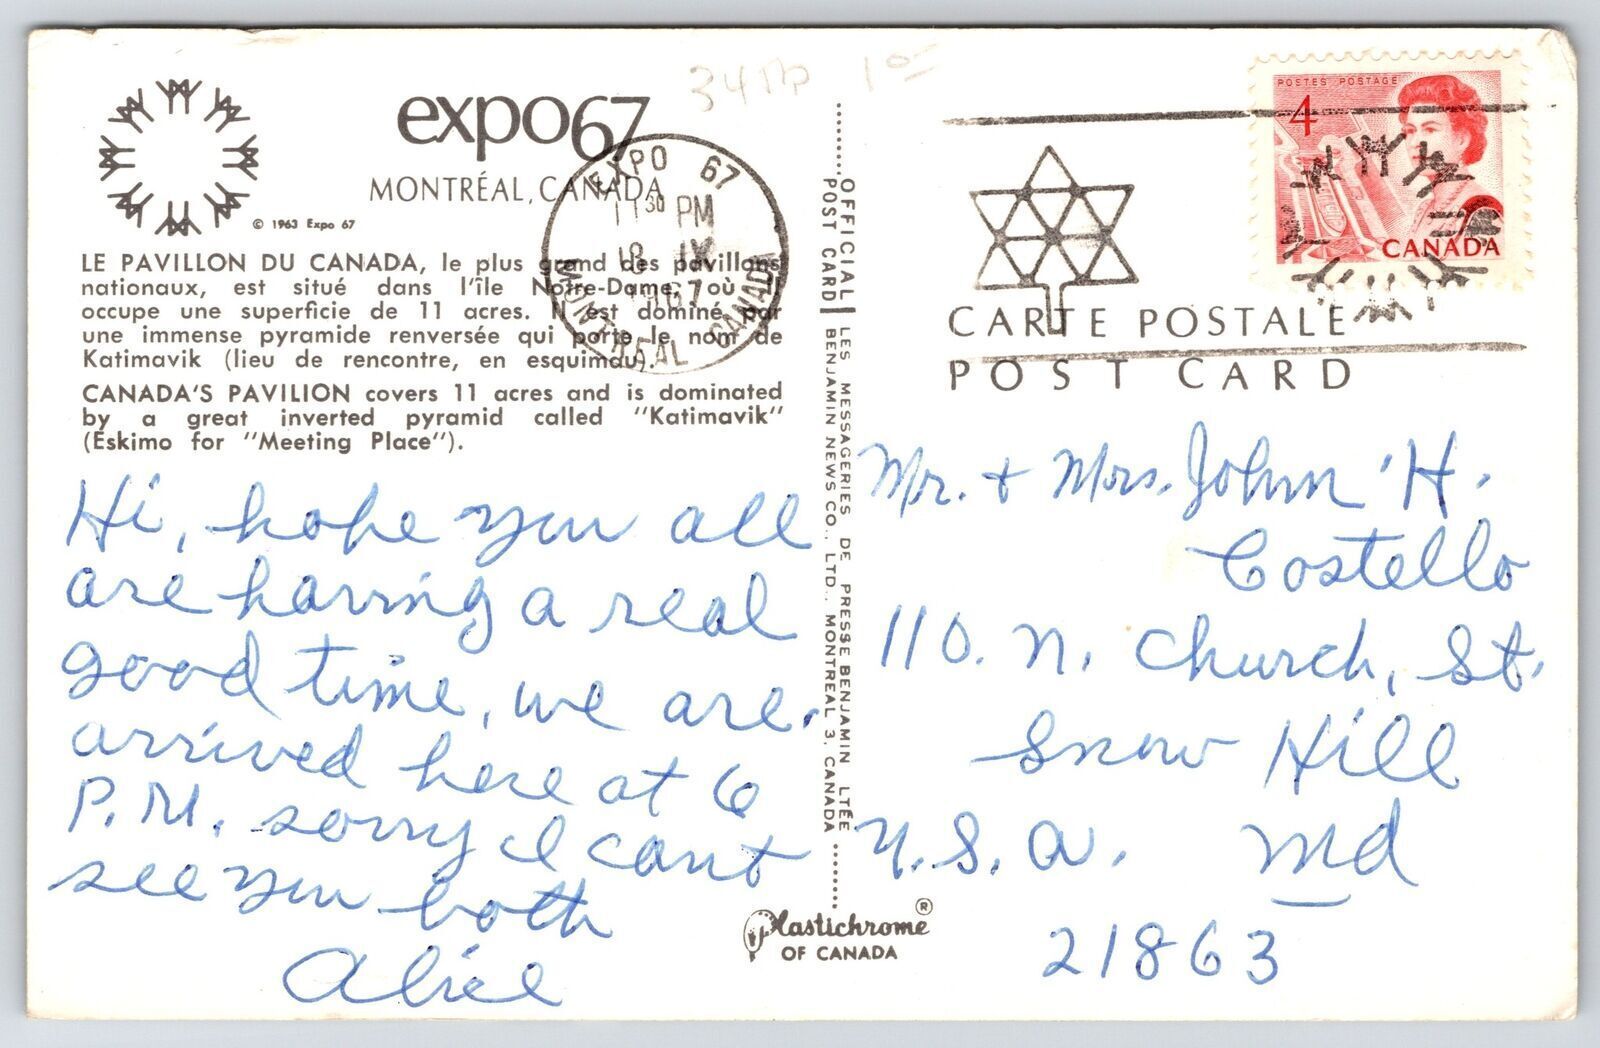 34MD 1 00
expo67
MONTRÉAL, CANADA
© 1963 Expo 67
EXPO 67
11 30 PM
18 IX
1967
MONTRÉAL CANADA
LE PAVILLON DU CANADA, le plus grand des pavillons
nationaux, est situé dans l'île Notre-Dame, où il
occupe une superficie de 11 acres. Il est dominé par
une immense pyramide renversée qui porte le nom de
Katimavik (lieu de rencontre, en esquimau).
CANADA'S PAVILION covers 11 acres and is dominated
by a great inverted pyramid called "Katimavik"
(Eskimo for "Meeting Place").
Hi, hope you all
are having a real
good time, we are.
arrived here at 6
P.M. sorry I cant
see you both
Alice
OFFICIAL LES MESSAGERIES DE PRESSE BENJAMIN LTÉE
POST CARD BENJAMIN NEWS CO., LTD., MONTREAL 3, CANADA
Plastichrome ®
OF CANADA
POSTES POSTAGE
4
CANADA
CARTE POSTALE
POST CARD
Mr. + Mrs. John H.
Costello
110. N. Church, St.
Snow Hill
U.S.A. Md
21863